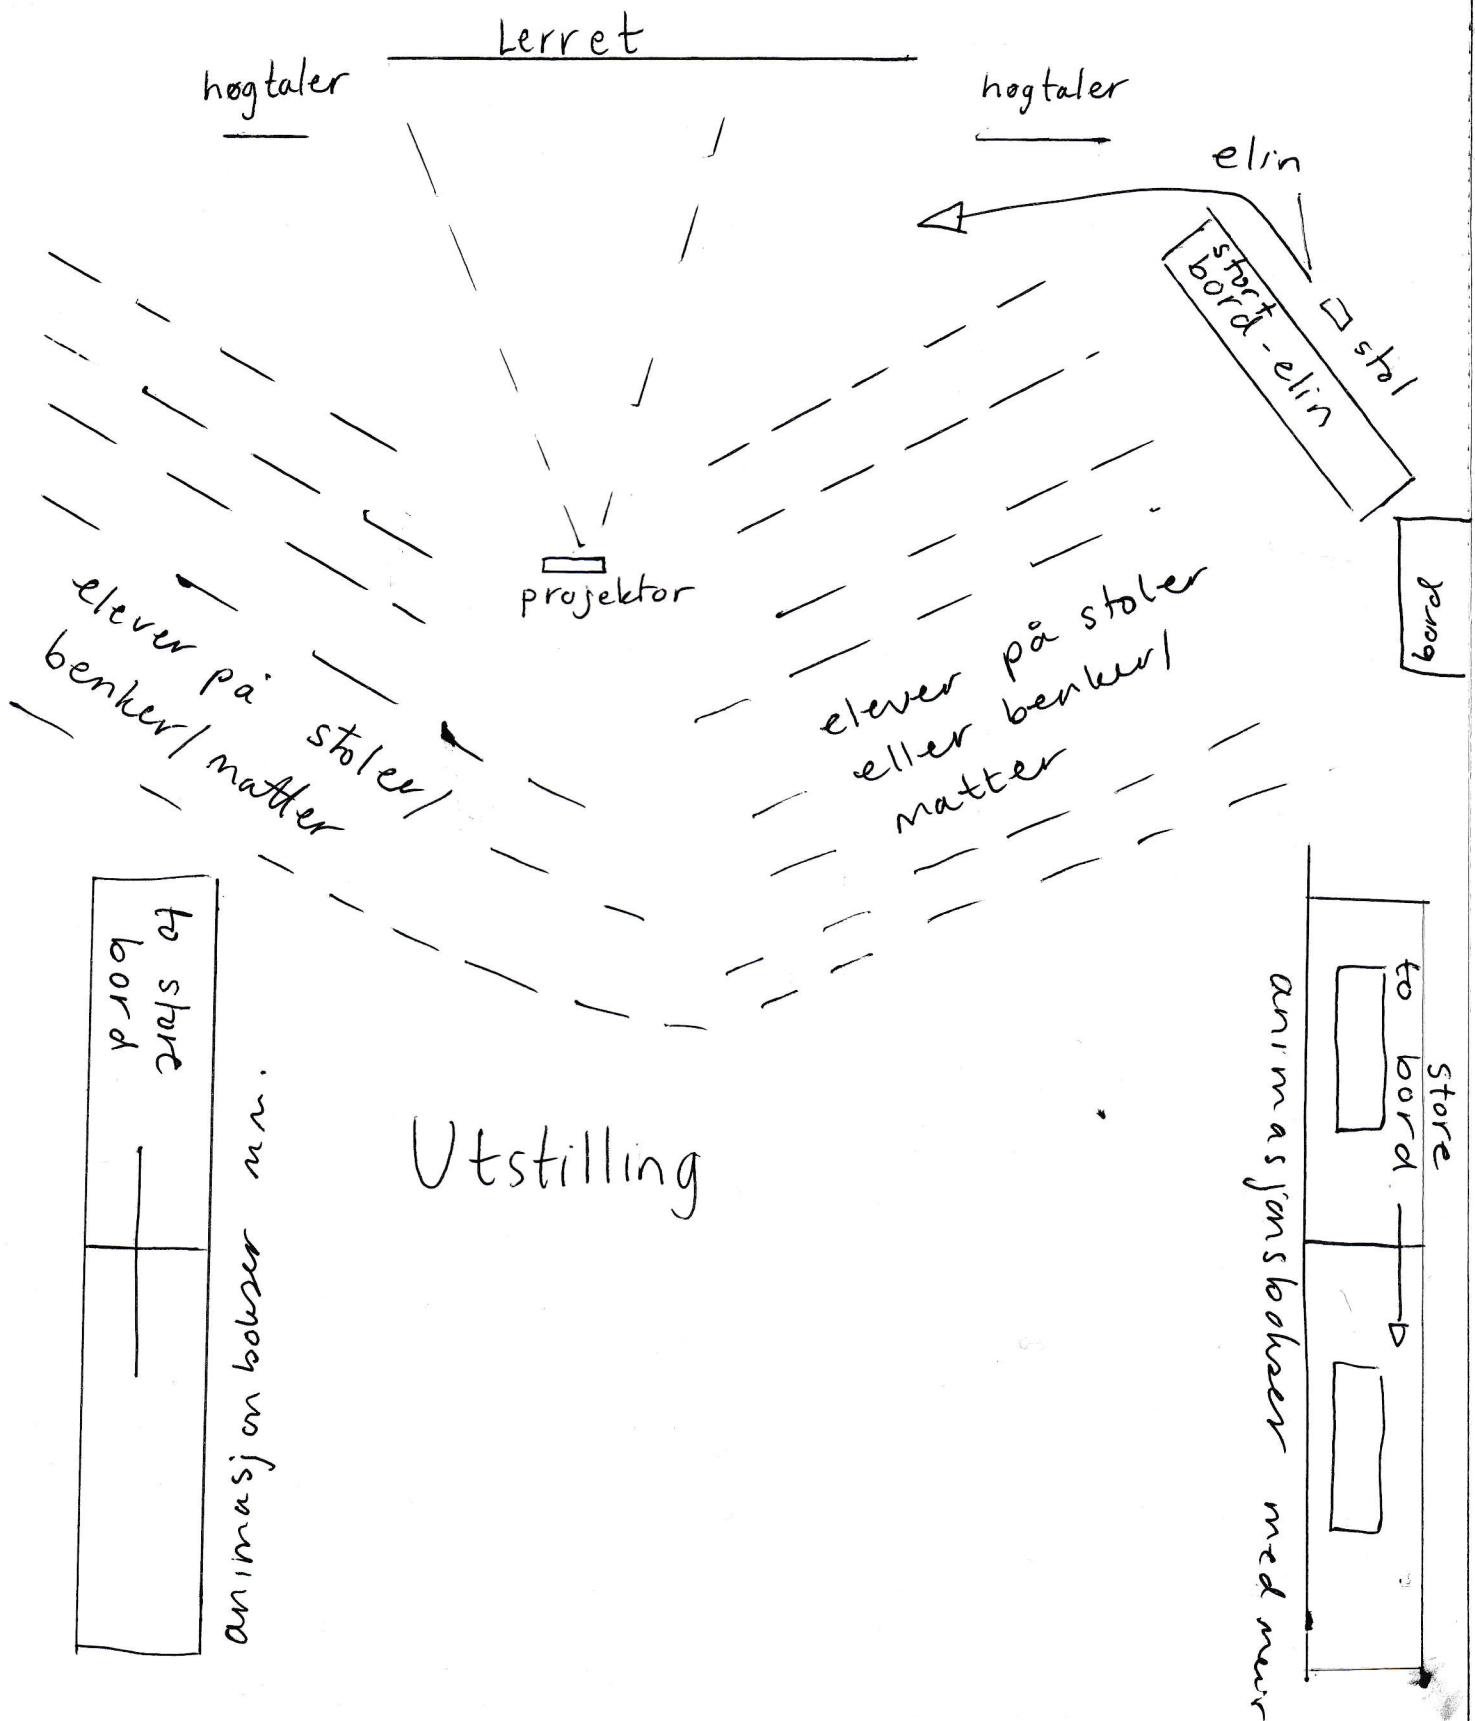 Lerret
høgtaler
høgtaler
elin
stort
bord - elin
stol
bord
projektor
elever på stoler/
benker/ matter
elever på stoler
eller benker/
matter
to store
bord
animasjon bokser m.m.
Utstilling
store
to bord
animasjonsbokser med meir